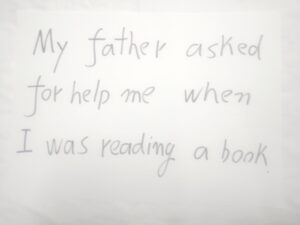 My father asked
for help me when
I was reading a book